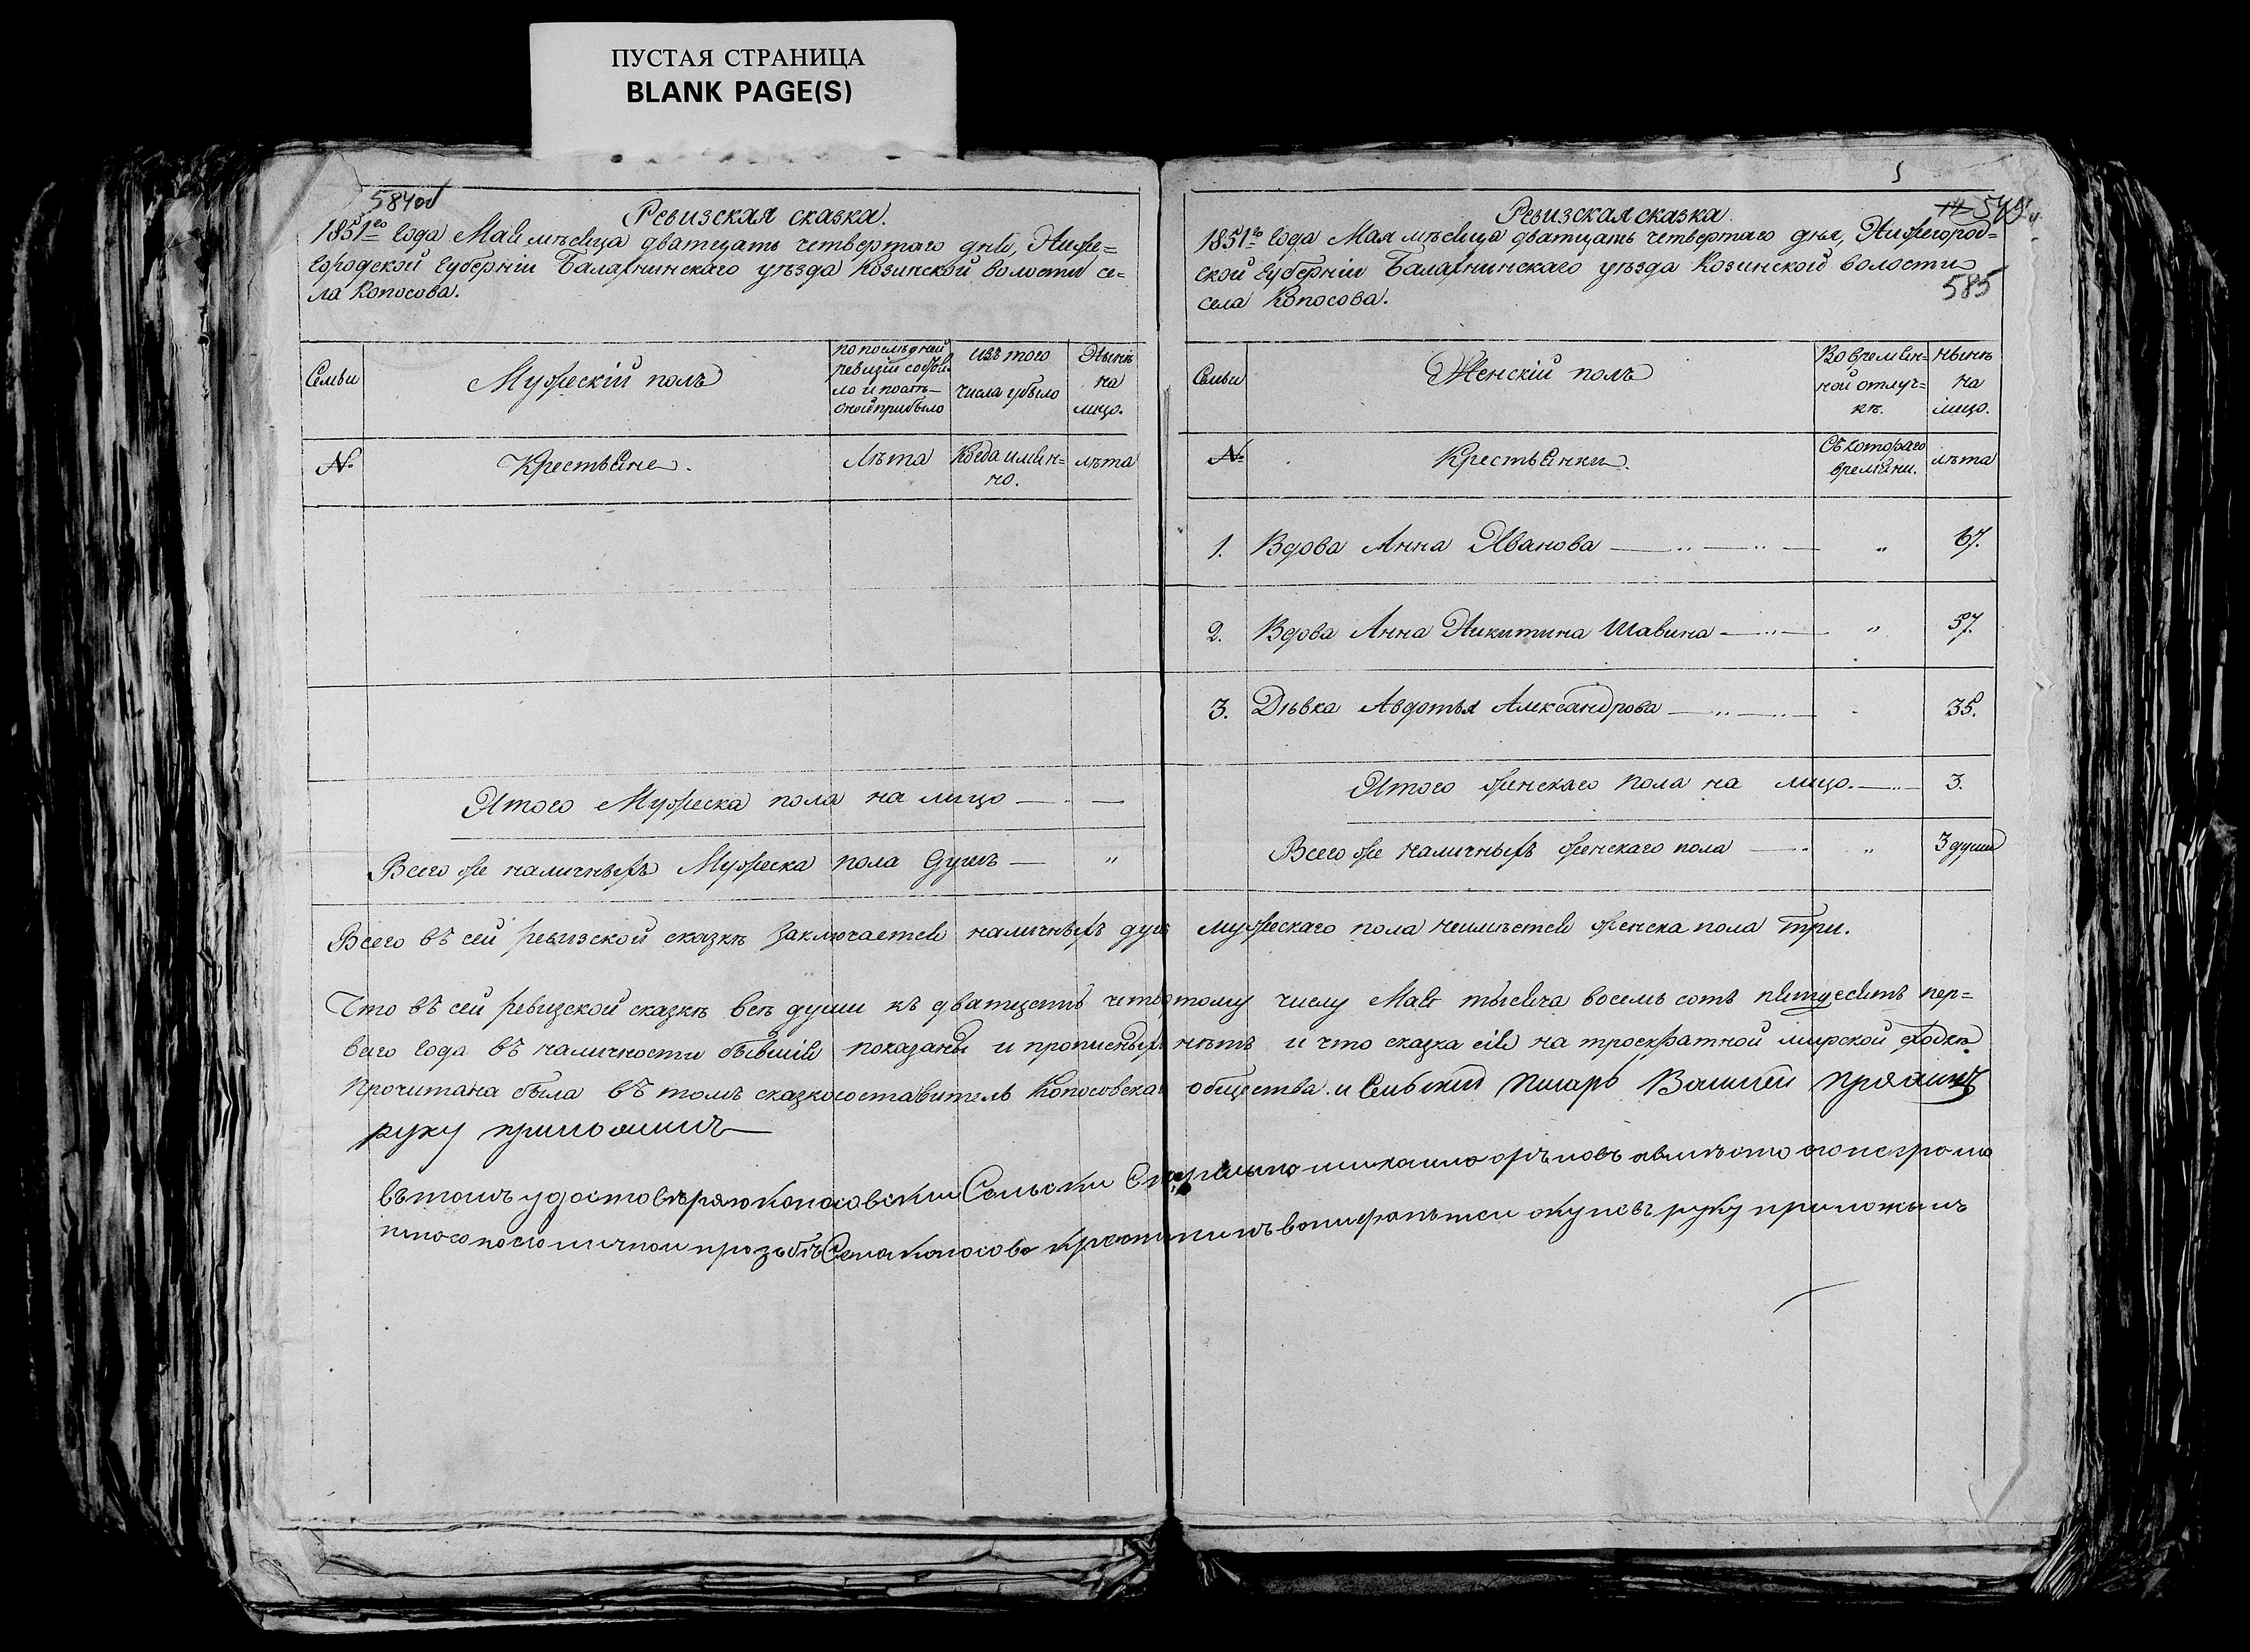 ПУСТАЯ СТРАНИЦА
BLANK PAGE(S)
584об
Ревизская сказка.
1851го года Мая мѣсяца дватцать четвертаго дня, Ниже-
городской губерніи Балахнинскаго уѣзда Козинской волости се-
ла Копосова.
Семьи
Мужескій полъ
по последней ревизіи состоя-
ло и послѣ
оной прибыло
изъ того
числа убыло
Нынѣ
на
лицо.
№
Крестьяне.
Лѣта
Когда имян-
но.
лѣта
Итого Мужеска пола на лицо — . —
Всего же наличныхъ Мужеска пола душъ — "
5
585
Ревизская сказка
1851го года Мая мѣсяца дватцать четвертаго дня, Нижегород-
ской губерніи Балахнинскаго уѣзда Козинской волости
села Копосова.
Семьи
Женскій полъ
Во времян-
ной отлуч-
кѣ.
нынѣ
на
лицо.
№
Крестьянки.
Съ котораго
времяни.
лѣта
1. Вдова Анна Иванова — .. — .. — " 67.
2. Вдова Анна Никитина Шавина — .. — " 57.
3. Дѣвка Авдотья Александрова — .. — .. — 35.
Итого женскаго пола на лицо. — .. — 3.
Всего же наличныхъ женскаго пола — . " 3 души
Всего въ сей ревизской сказкѣ заключается наличныхъ душъ мужескаго пола неимѣется женска пола три.
Что въ сей ревизской сказкѣ всѣ души къ дватцать четвертому числу Мая тысяча восемь сотъ пятдесятъ пер-
ваго года въ наличности бывшія показаны и прописныхъ нѣтъ и что сказка сія на троекратной мирской сходкѣ
прочитана была въ томъ сказкосоставитель Копосовскаго общества и Сельский писарь Василей
руку приложилъ
въ томъ удостовѣряю копосовски Сельски Старшина
Села Копосова крестьянинъ руку приложилъ